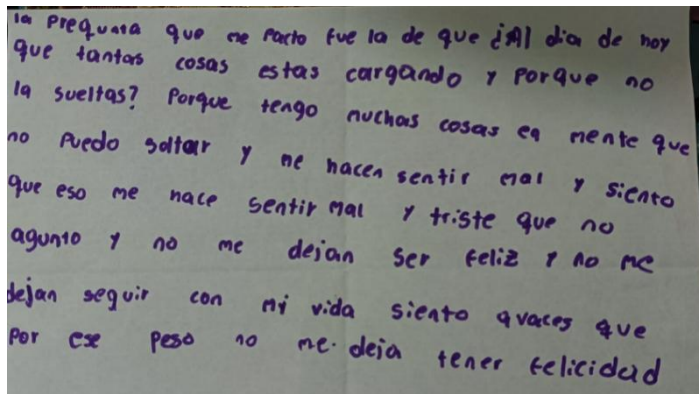 la Pregunta que me Pacto fue la de que ¿Al dia de hoy
que tantas cosas estas cargando y Porque no
la sueltas? Porque tengo muchas cosas en mente que
no Puedo soltar y me hacen sentir mal y siento
que eso me hace sentir mal y triste que no
agunto y no me dejan ser feliz y no me
dejan seguir con mi vida siento avaces que
Por ese peso no me deja tener felicidad